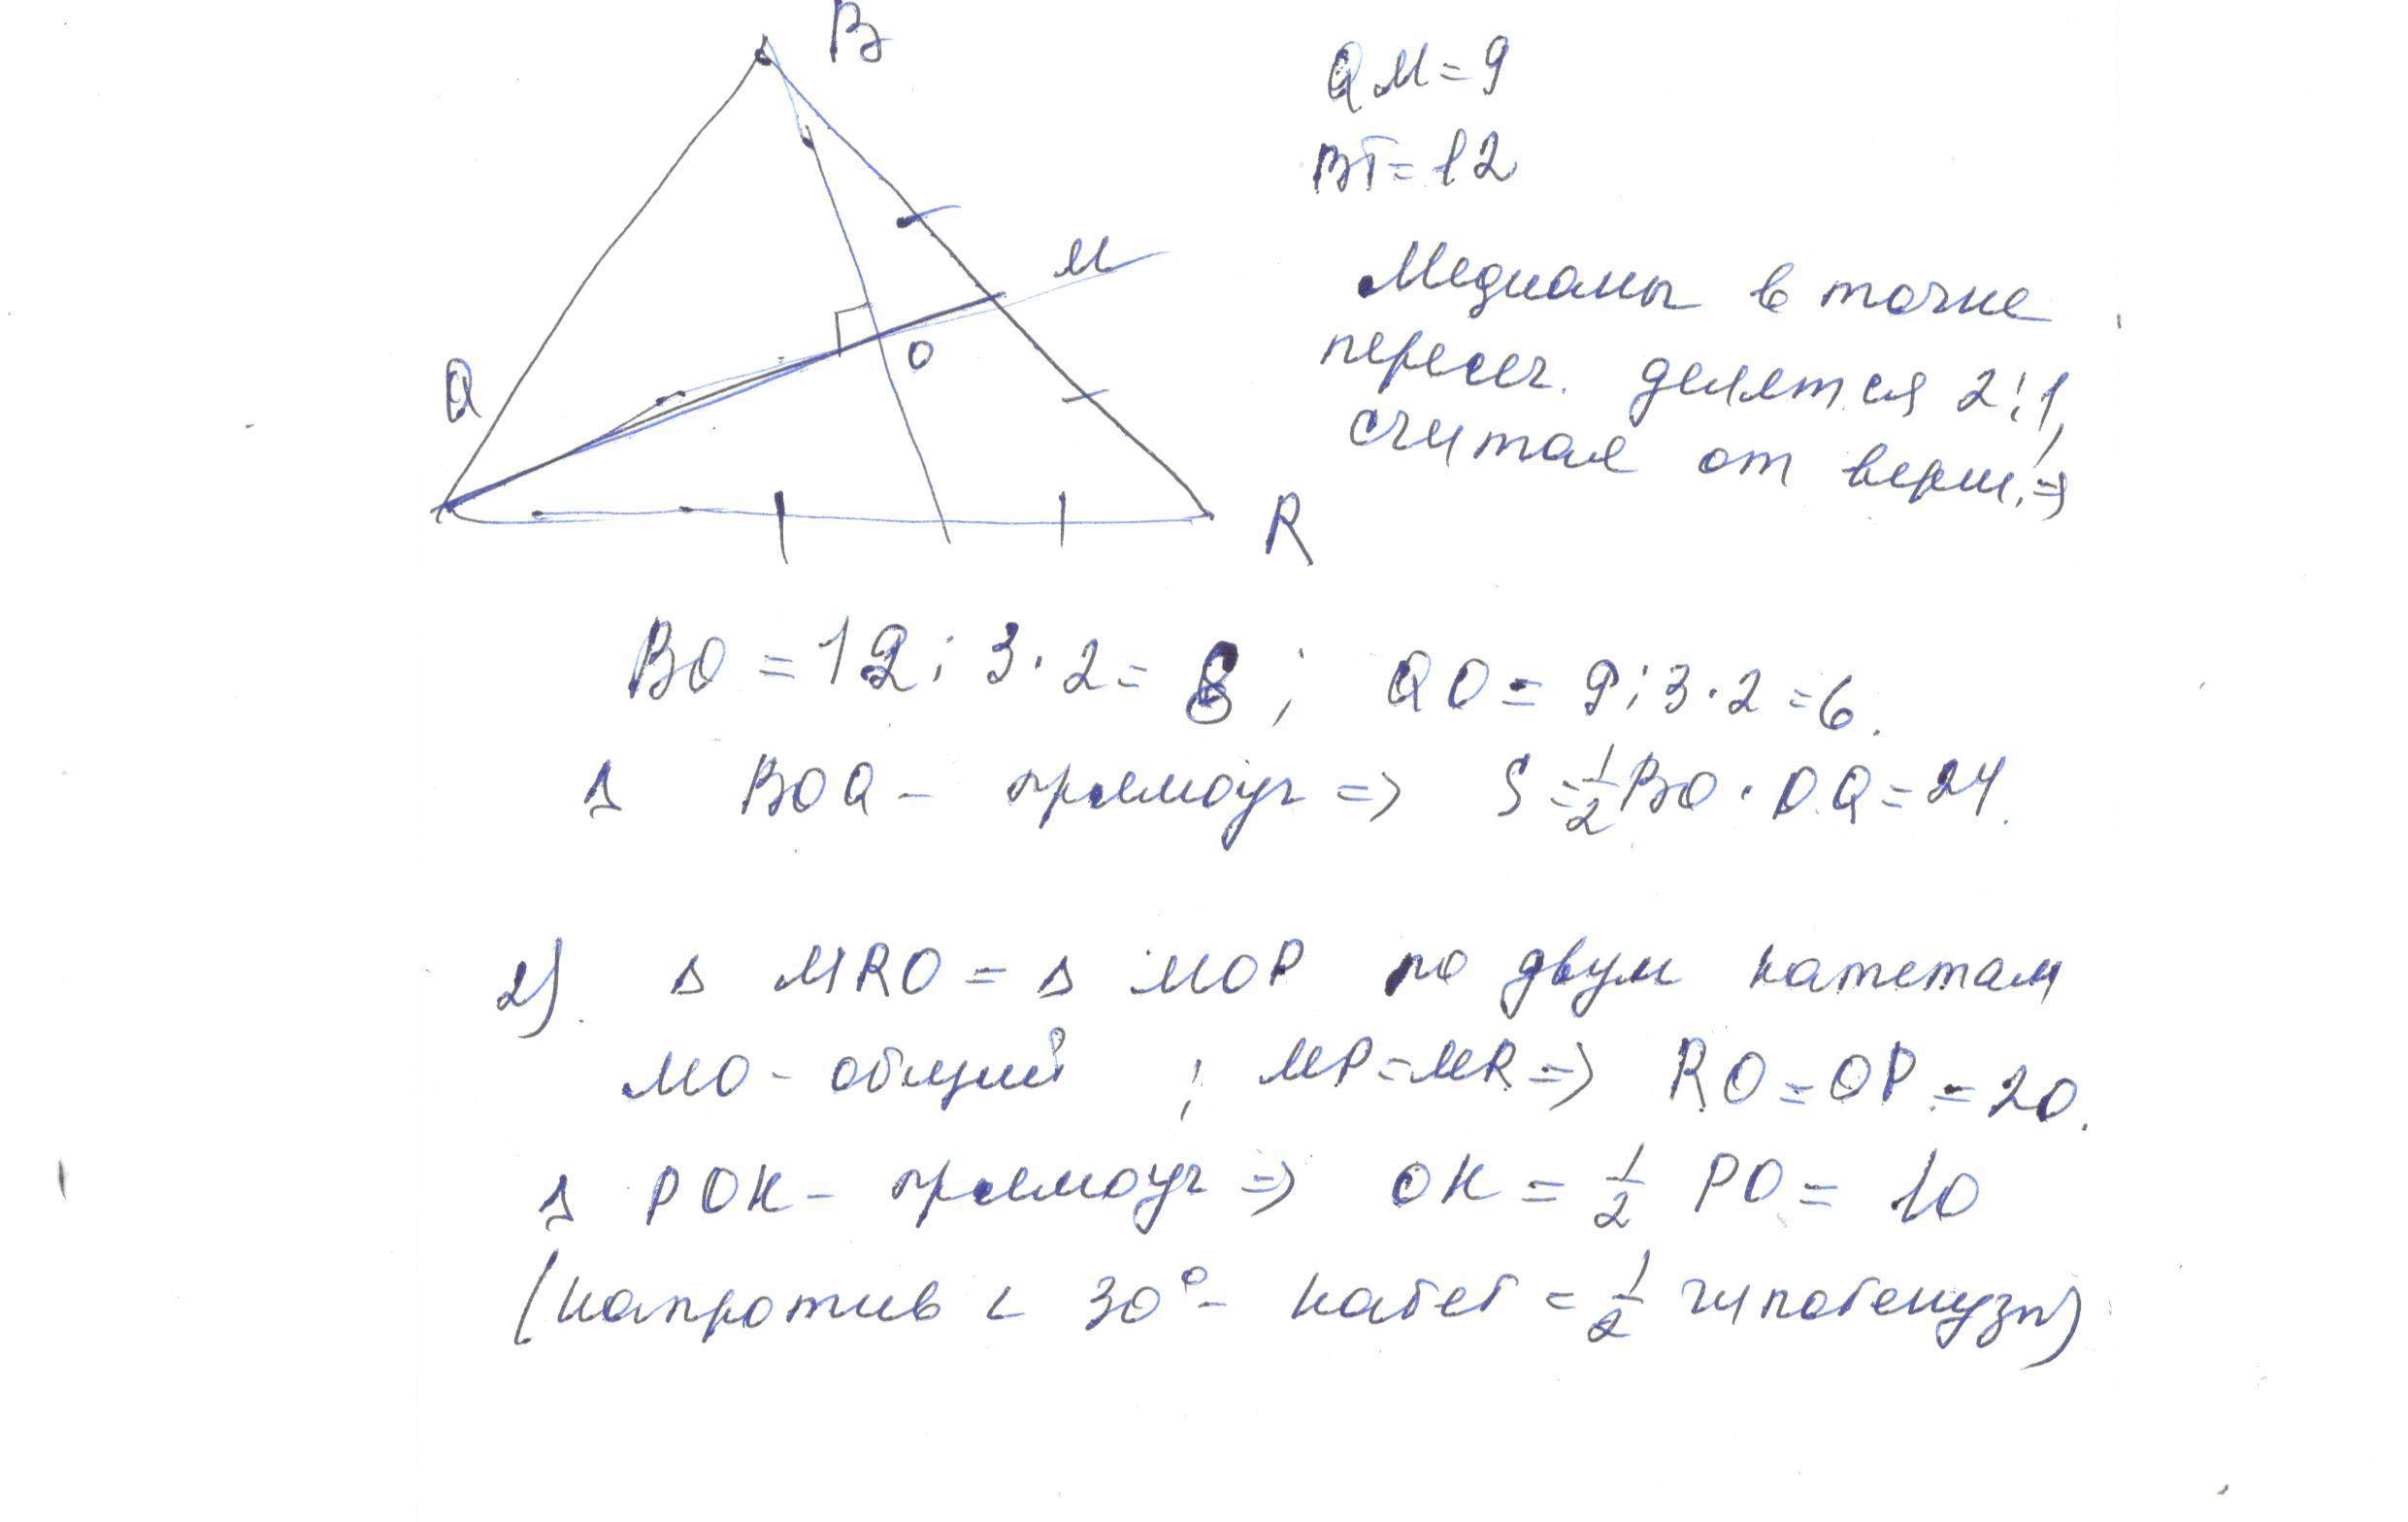 B
QM = 9
BT = 12
M
O
Q
R
Медианы в точке
пересеч. делятся 2:1,
считая от верш. ⇒
BO = 12 : 3 · 2 = 8 ; QO = 9 : 3 · 2 = 6.
Δ BOQ – прямоуг ⇒ S = 1/2 BO · OQ = 24.
2). Δ MRO = Δ MOP по двум катетам
MO – общий ; MP = MR ⇒ RO = OP = 20.
Δ POK – прямоуг ⇒ OK = 1/2 PO = 10
(напротив ∠ 30° – катет = 1/2 гипотенузы)